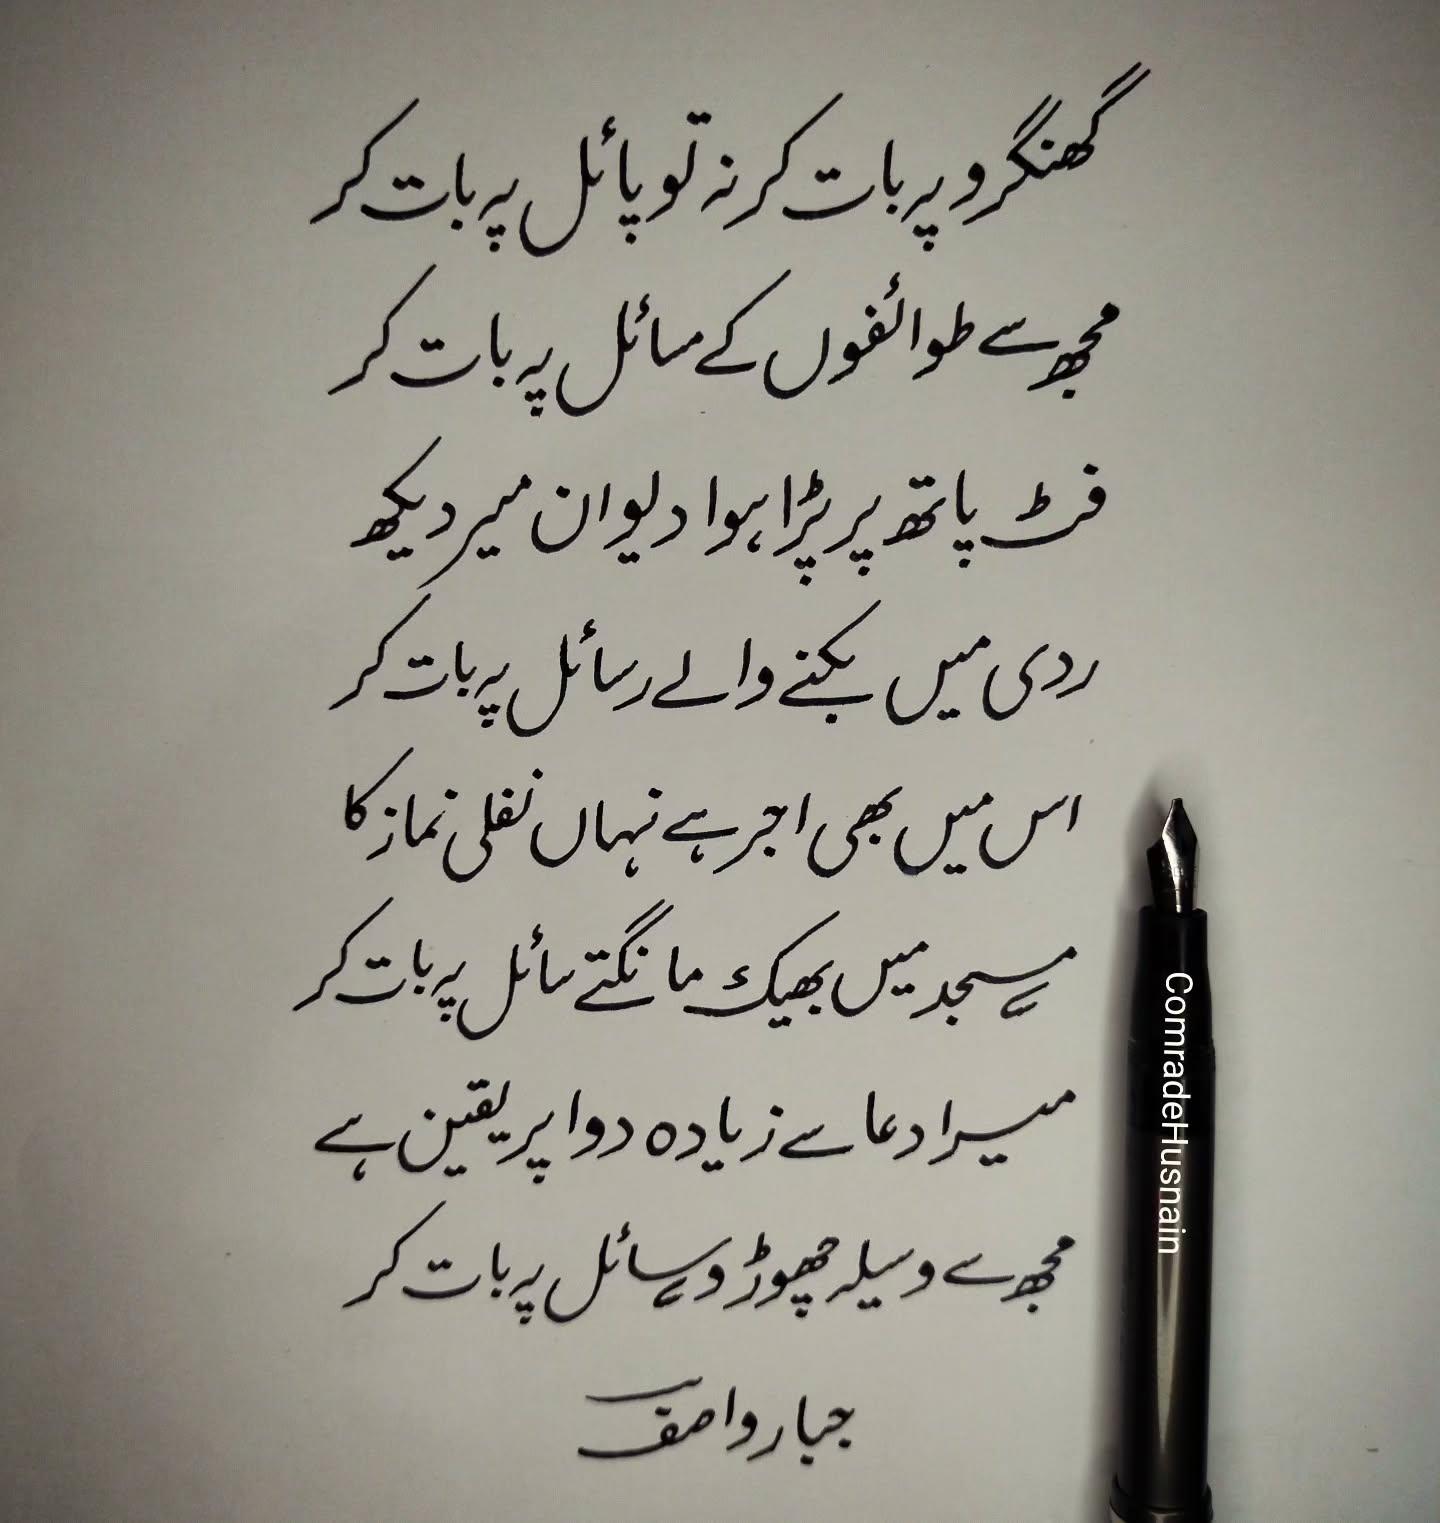 گھنگرو پر بات کر نہ تو پائل پہ بات کر
مجھ سے طوائفوں کے مسائل پہ بات کر
فٹ پاتھ پر پڑا ہوا دیوان میر دیکھ
ردی میں بکنے والے رسائل پہ بات کر
اس میں بھی اجر ہے نہاں نفلی نماز کا
مسجد میں بھیک مانگتے سائل پہ بات کر
میرا دعا سے زیادہ دوا پر یقین ہے
مجھ سے وسیلہ چھوڑ وسائل پہ بات کر
جبار واصف
ComradeHusnain